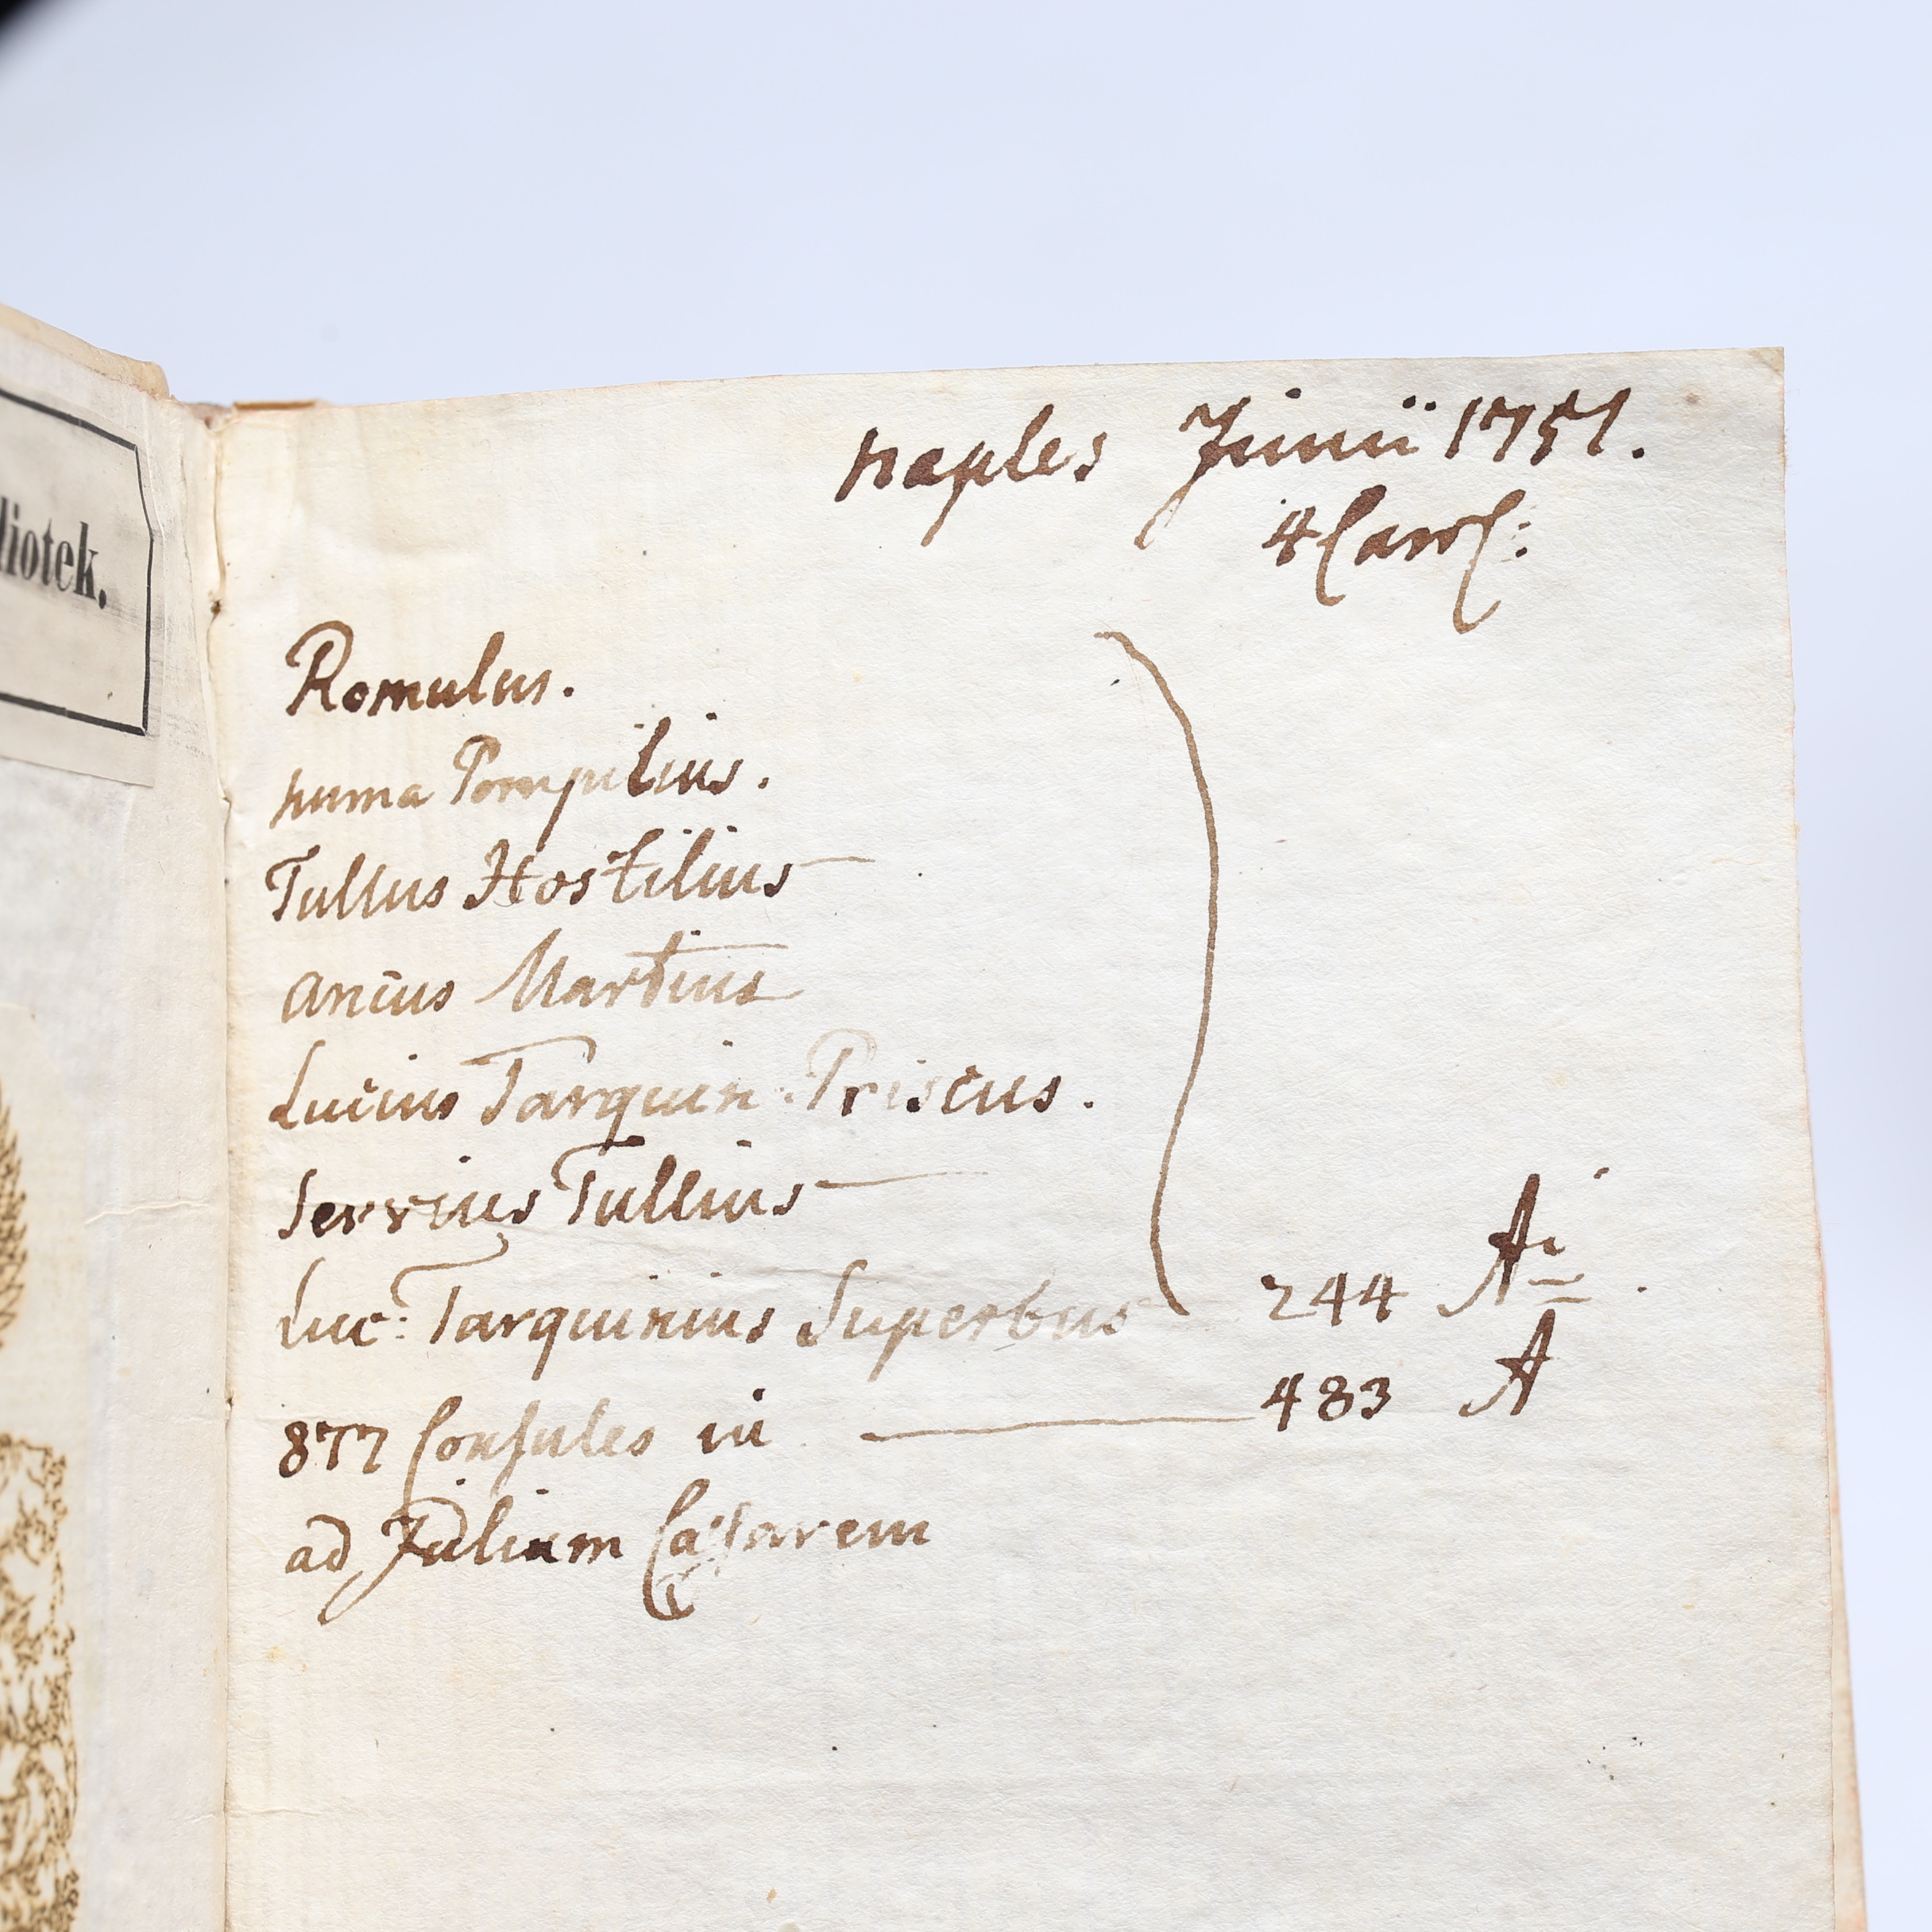 liotek.
naples Junii 1751.
4 Carl:
Romulus.
numa Pompilius.
Tullus Hostilius
ancus Martius
Lucius Tarquin: Priscus.
Servius Tullius
Luc: Tarquinius Superbus 244 A
877 Consules in 483 A
ad Julium Caesarem